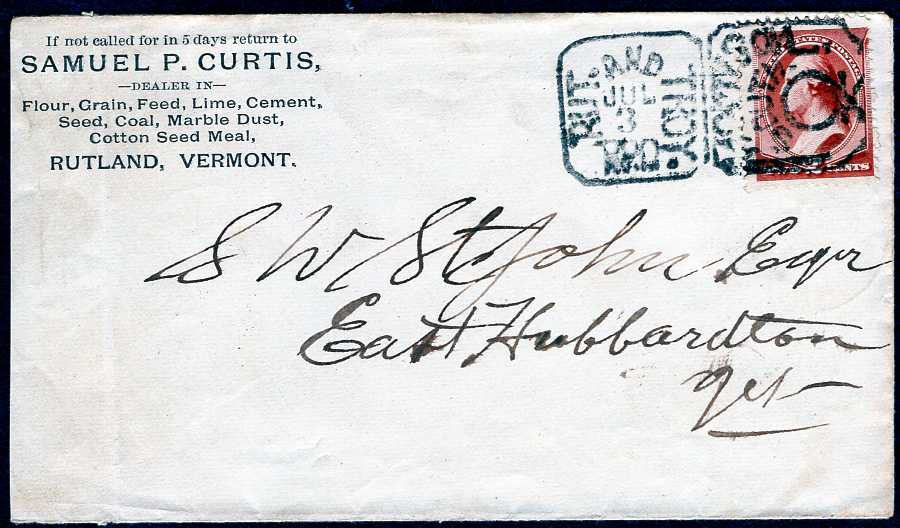 If not called for in 5 days return to
SAMUEL P. CURTIS,
—DEALER IN—
Flour, Grain, Feed, Lime, Cement,
Seed, Coal, Marble Dust,
Cotton Seed Meal,
RUTLAND, VERMONT.
RUT. AND TROY
JUL
3
STATES POSTAGE
2 CENTS
S W St John Eqr
East Hubbardton